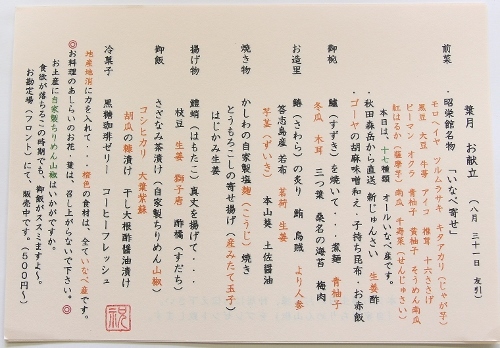 葉月 お献立 (八月三十一日 友引)
前菜 ・昭栄館名物 「いなべ寄せ」
モロヘイヤ ツルムラサキ キタアカリ(じゃが芋)
黒豆 大豆 牛蒡 アイコ 椎茸 十六ささげ
ピーマン オクラ 青柚子 黄柚子 そうめん南瓜
紅はるか(薩摩芋) 南瓜 千寿菜(せんじゅさい)
本日は、十七種類 オールいなべ産です。
・秋田森岳から直送 新じゅんさい 生姜酢
・ゴーヤの胡麻味噌和え ・子持ち昆布 ・お赤飯
御椀 鱸(すずき)を焼いて・・・煮麺 青柚子
冬瓜 木耳 三つ葉 桑名の海苔 梅肉
お造里 鰆(さわら)の炙り 鮪 烏賊 より人参
答志島産 若布 茗荷 生姜
芋茎(ずいき) 本山葵 土佐醤油
焼き物 かしわの自家製塩麹(こうじ)焼き
とうもろこしの寄せ揚げ(産みたて玉子)
はじかみ生姜
揚げ物 鱧蛸(はもたこ)真丈を揚げて・・・
枝豆 生姜 獅子唐 酢橘(すだち)
御飯 さざなみ茶漬け(自家製ちりめん山椒)
コシヒカリ 大葉紫蘇
胡瓜の糠漬け 干し大根酢醤油漬け
冷菓子 黒糖珈琲ゼリー コーヒーフレッシュ
地産地消に力を入れて・・・橙色の食材は、全ていなべ産です。
◎お料理のあしらいの花・葉は、召し上がらないで下さい。◎
お土産に自家製ちりめん山椒はいかがですか。
食欲が落ちるこの時期でも、御飯がススミますよ。
お勘定場(フロント)にて、販売中です。(500円~)